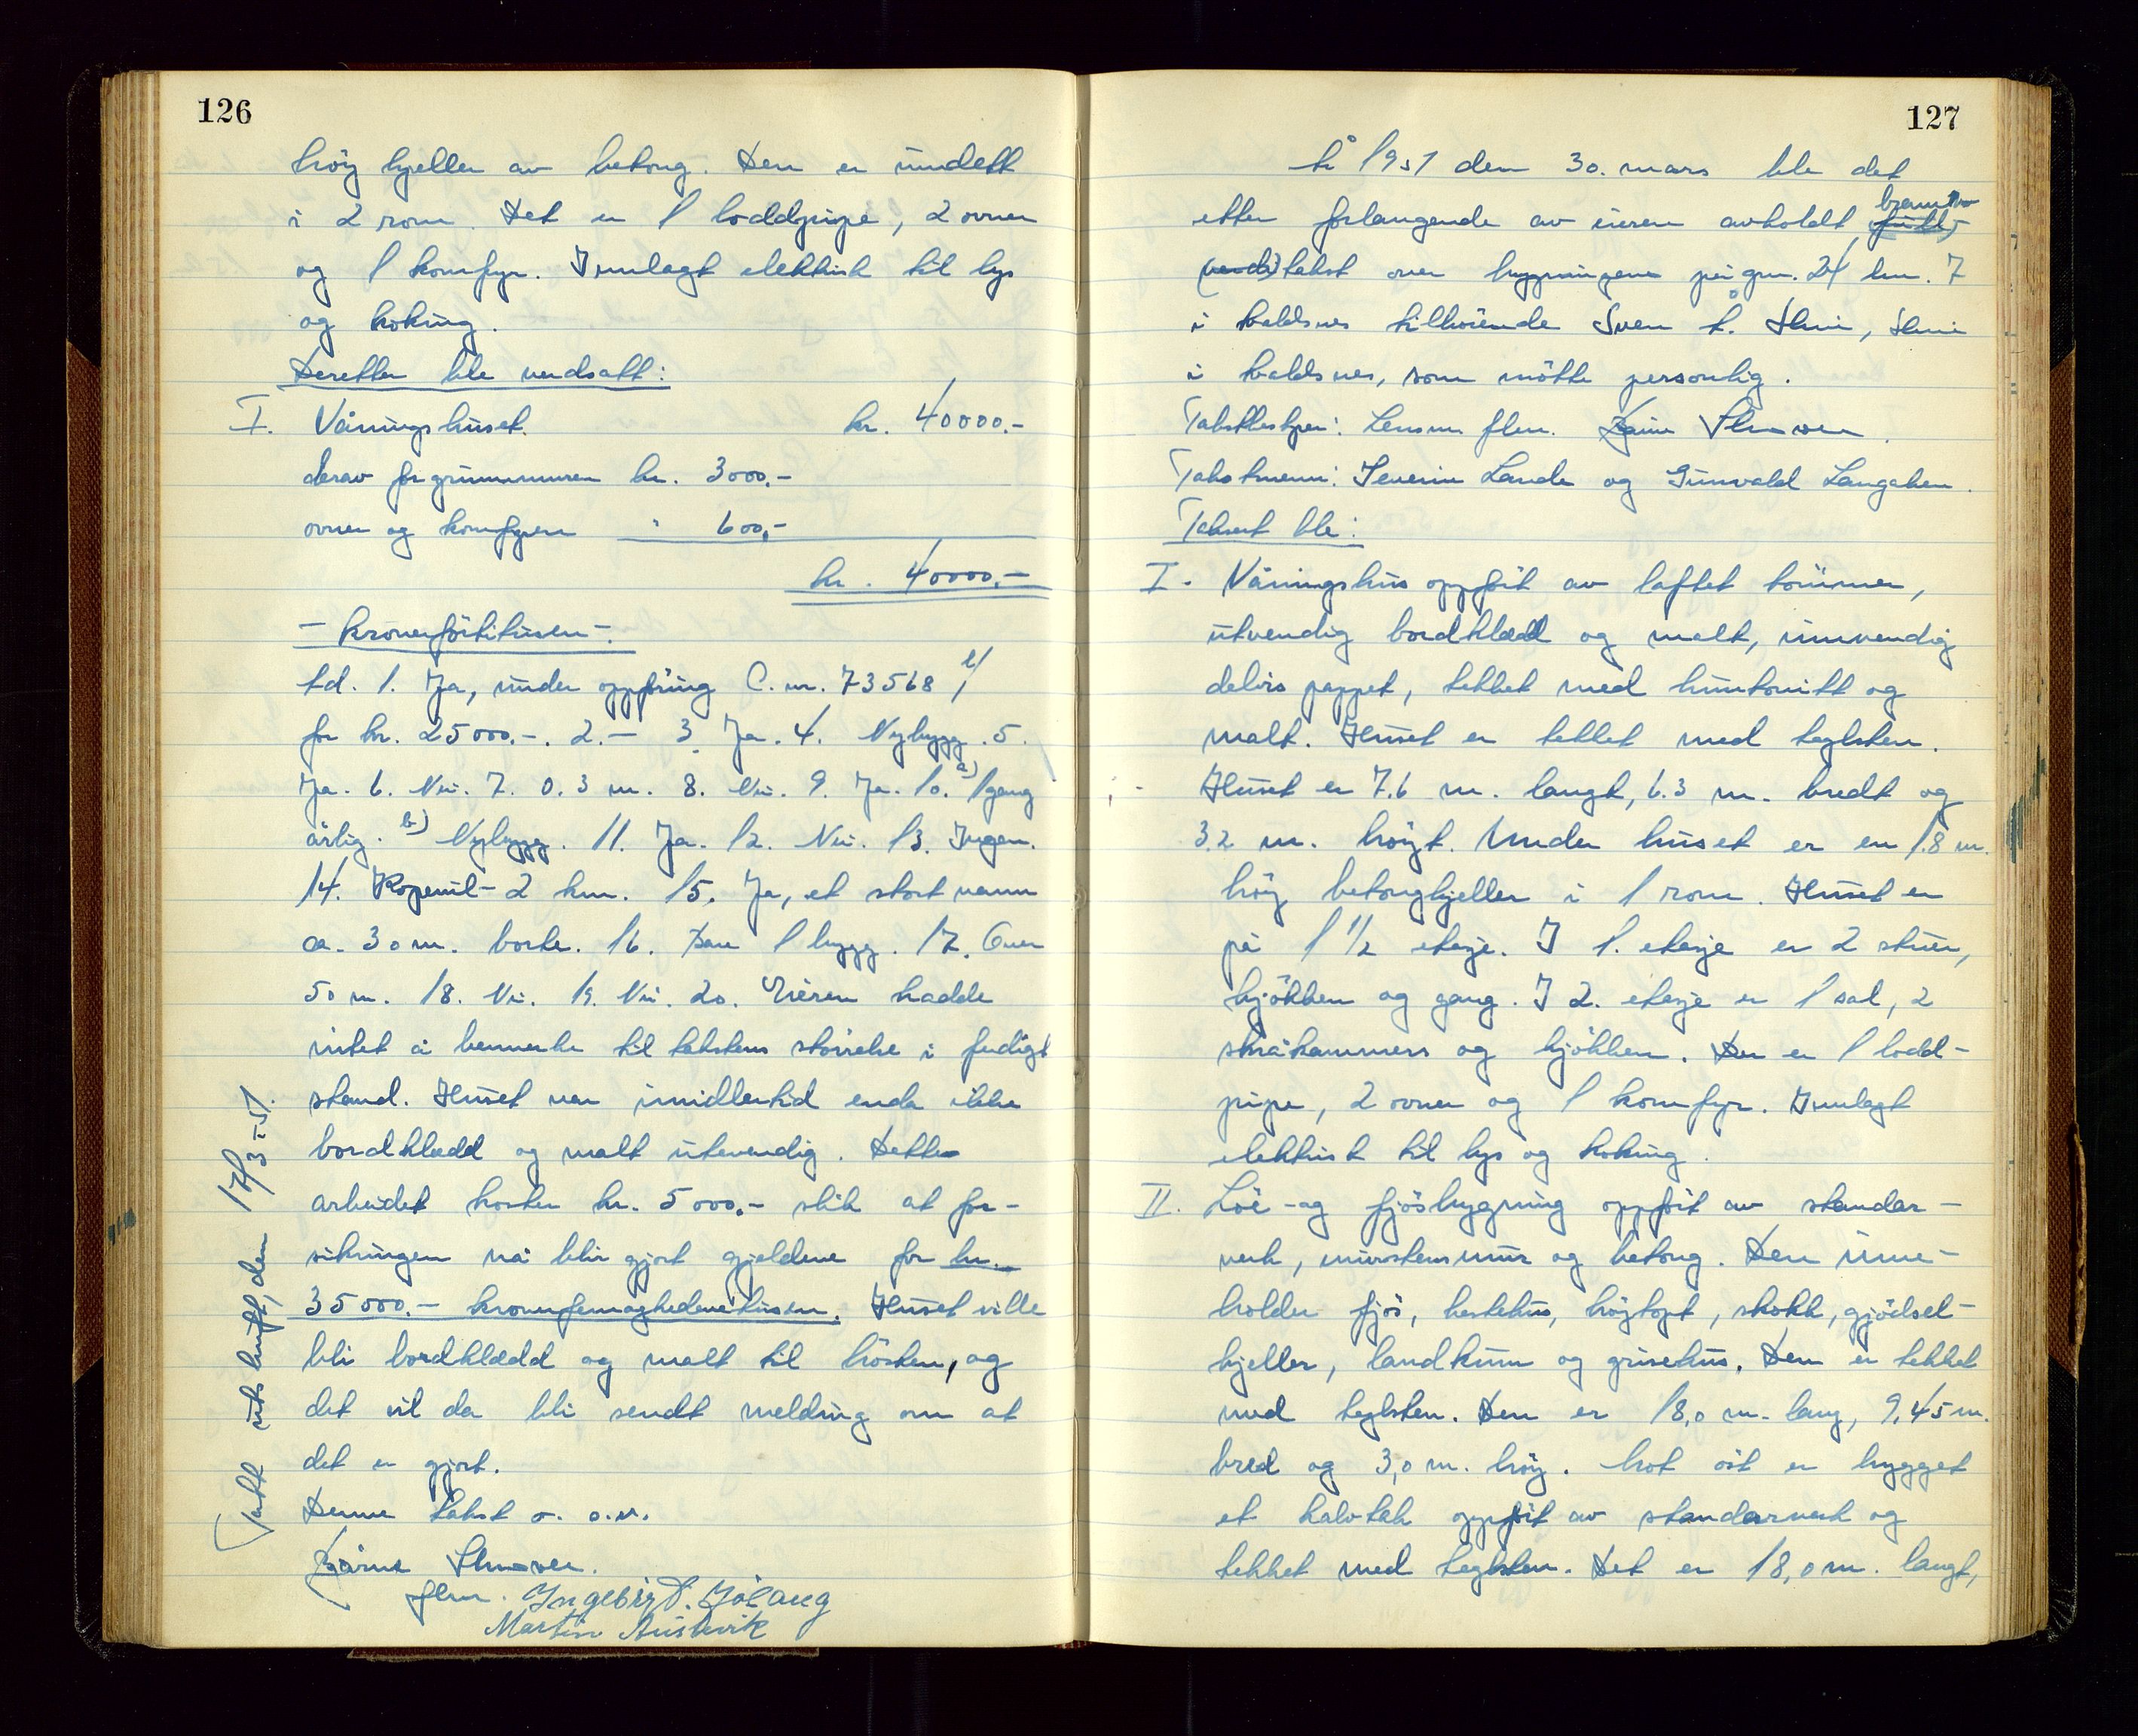 126
höy kjeller av betong. Den er inndelt
i 2 rom. Det er 1 loddpipe, 2 ovner
og 1 komfyr. Innlagt elektrisk til lys
og koking.
Deretter ble verdsatt:
I. Våningshuset. kr. 40000.-
derav for grunnmuren kr. 3000.-
ovner og komfyren " 600.-
kr. 40000.-
- kronerförtitusen -.
Ad. 1. Ja, under oppföring C. nr. 73568
for kr. 25000.-. 2. - 3. Ja. 4. Nybygg. 5.
Ja. 6. Nei. 7. 0.3 m. 8. Nei. 9. Ja. 10. a) 1 gang
årlig. b) Nybygg. 11. Ja. 12. Nei. 13. Ingen.
14. Kopervik 2 km. 15. Ja, et stort vann
ca. 30 m. borte. 16. Bare 1 bygg. 17. Over
50 m. 18. Nei. 19. Nei. 20. Eieren hadde
intet å bemerke til takstens störrelse i ferdigt
stand. Huset var imidlertid enda ikke
bordklædd og malt utvendig. Dette
arbeidet koster kr. 5000.- slik at for-
sikringen nå blir gjort gjeldene for kr.
35000.- kronerfemogtredevetusen. Huset ville
bli bordklædd og malt til hösten, og
det vil da bli sendt melding om at
det er gjort.
Denne takst o. s. v.
flm. Ingebrigt
Martin
Takt utskrift, den 17/3-51.
127
År 1951 den 30. mars ble det
etter forlangende av eieren avholdt brann-
takst over bygningene på gnr. 24 bnr. 7
i Avaldsnes tilhörende Sven Å. Utvik, Utvik
i Avaldsnes, som mötte personlig.
Takstbestyrer: Lensm. flm.
Takstmenn: Severin Lande og Gunvald Langåker.
Taksert ble:
I. Våningshus oppfört av laftet tömmer,
utvendig bordklædd og malt, innvendig
delvis pappet, tekket med huntonitt og
malt. Huset er tekket med teglsten.
Huset er 7.6 m. langt, 6.3 m. bredt og
3.2 m. höyt. Under huset er en 1.8 m.
höy betongkjeller i 1 rom. Huset er
på 1 1/2 etasje. I 1. etasje er 2 stuer,
kjökken og gang. I 2. etasje er 1 sal, 2
skråkammers og kjökken. Der er 1 lodd-
pipe, 2 ovner og 1 komfyr. Innlagt
elektrisk til lys og koking.
II. Löe- og fjösbygning oppfört av standar-
verk, murstensmur og betong. Den inne-
holder fjös, hestehus, höytopt, skokk, gjödsel-
kjeller, landkum og grisehus. Den er tekket
med teglsten. Den er 18,0 m. lang, 9,45 m.
bred og 3,0 m. höy. Mot öst er bygget
et halvtak oppfört av standarverk og
tekket med teglsten. Det er 18,0 m. langt,